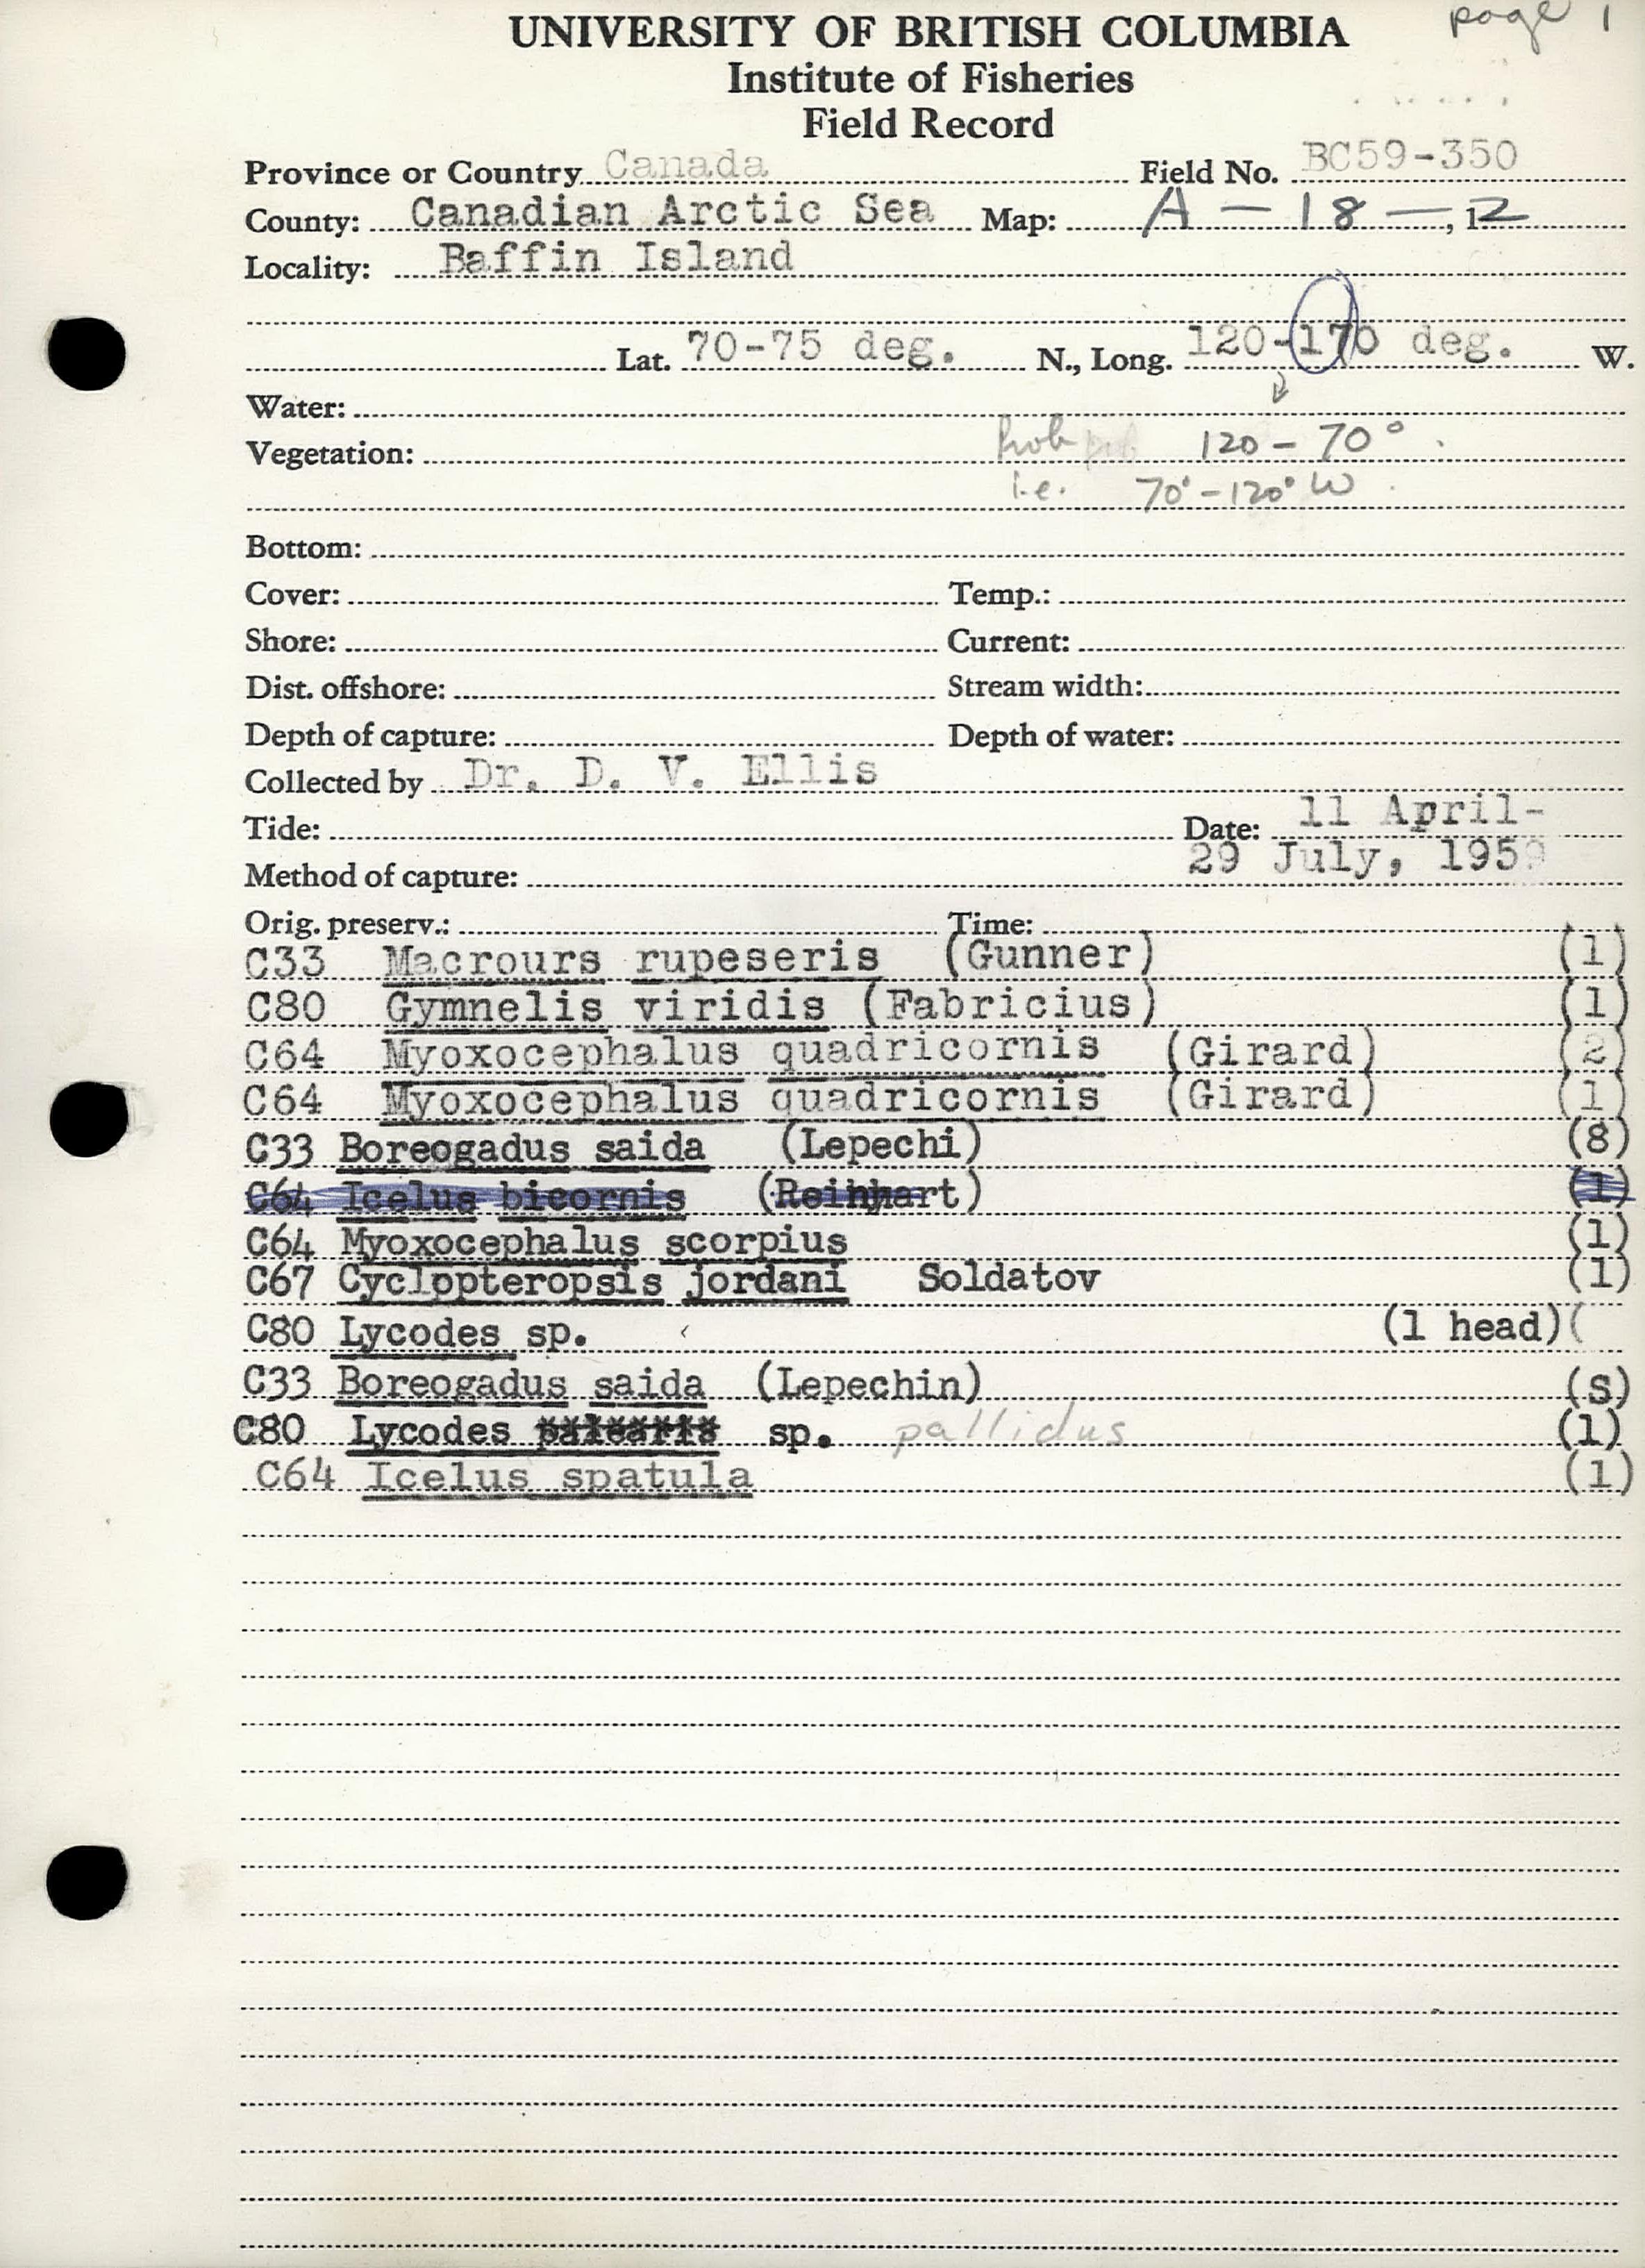 page 1
UNIVERSITY OF BRITISH COLUMBIA
Institute of Fisheries
Field Record
Province or Country Canada Field No. BC59-350
County: Canadian Arctic Sea Map: A-18-, 12
Locality: Baffin Island
Lat. 70-75 deg. N., Long. 120-170 deg. W.
Water:
120 - 70°
Vegetation:
i.e. 70°-120° W
Bottom:
Cover: Temp.:
Shore: Current:
Dist. offshore: Stream width:
Depth of capture: Depth of water:
Collected by Dr. D. V. Ellis
Tide: Date: 11 April-
29 July, 1959
Method of capture:
Orig. preserv.: Time:
C33 Macrours rupeseris (Gunner) (1)
C80 Gymnelis viridis (Fabricius) (1)
C64 Myoxocephalus quadricornis (Girard) (2)
C64 Myoxocephalus quadricornis (Girard) (1)
C33 Boreogadus saida (Lepechi) (8)
C64 Icelus bicornis (Reinhart) (1)
C64 Myoxocephalus scorpius (1)
C67 Cyclopteropsis jordani Soldatov (1)
C80 Lycodes sp. (1 head)(
C33 Boreogadus saida (Lepechin) (s)
C80 Lycodes sp. pallidus (1)
C64 Icelus spatula (1)